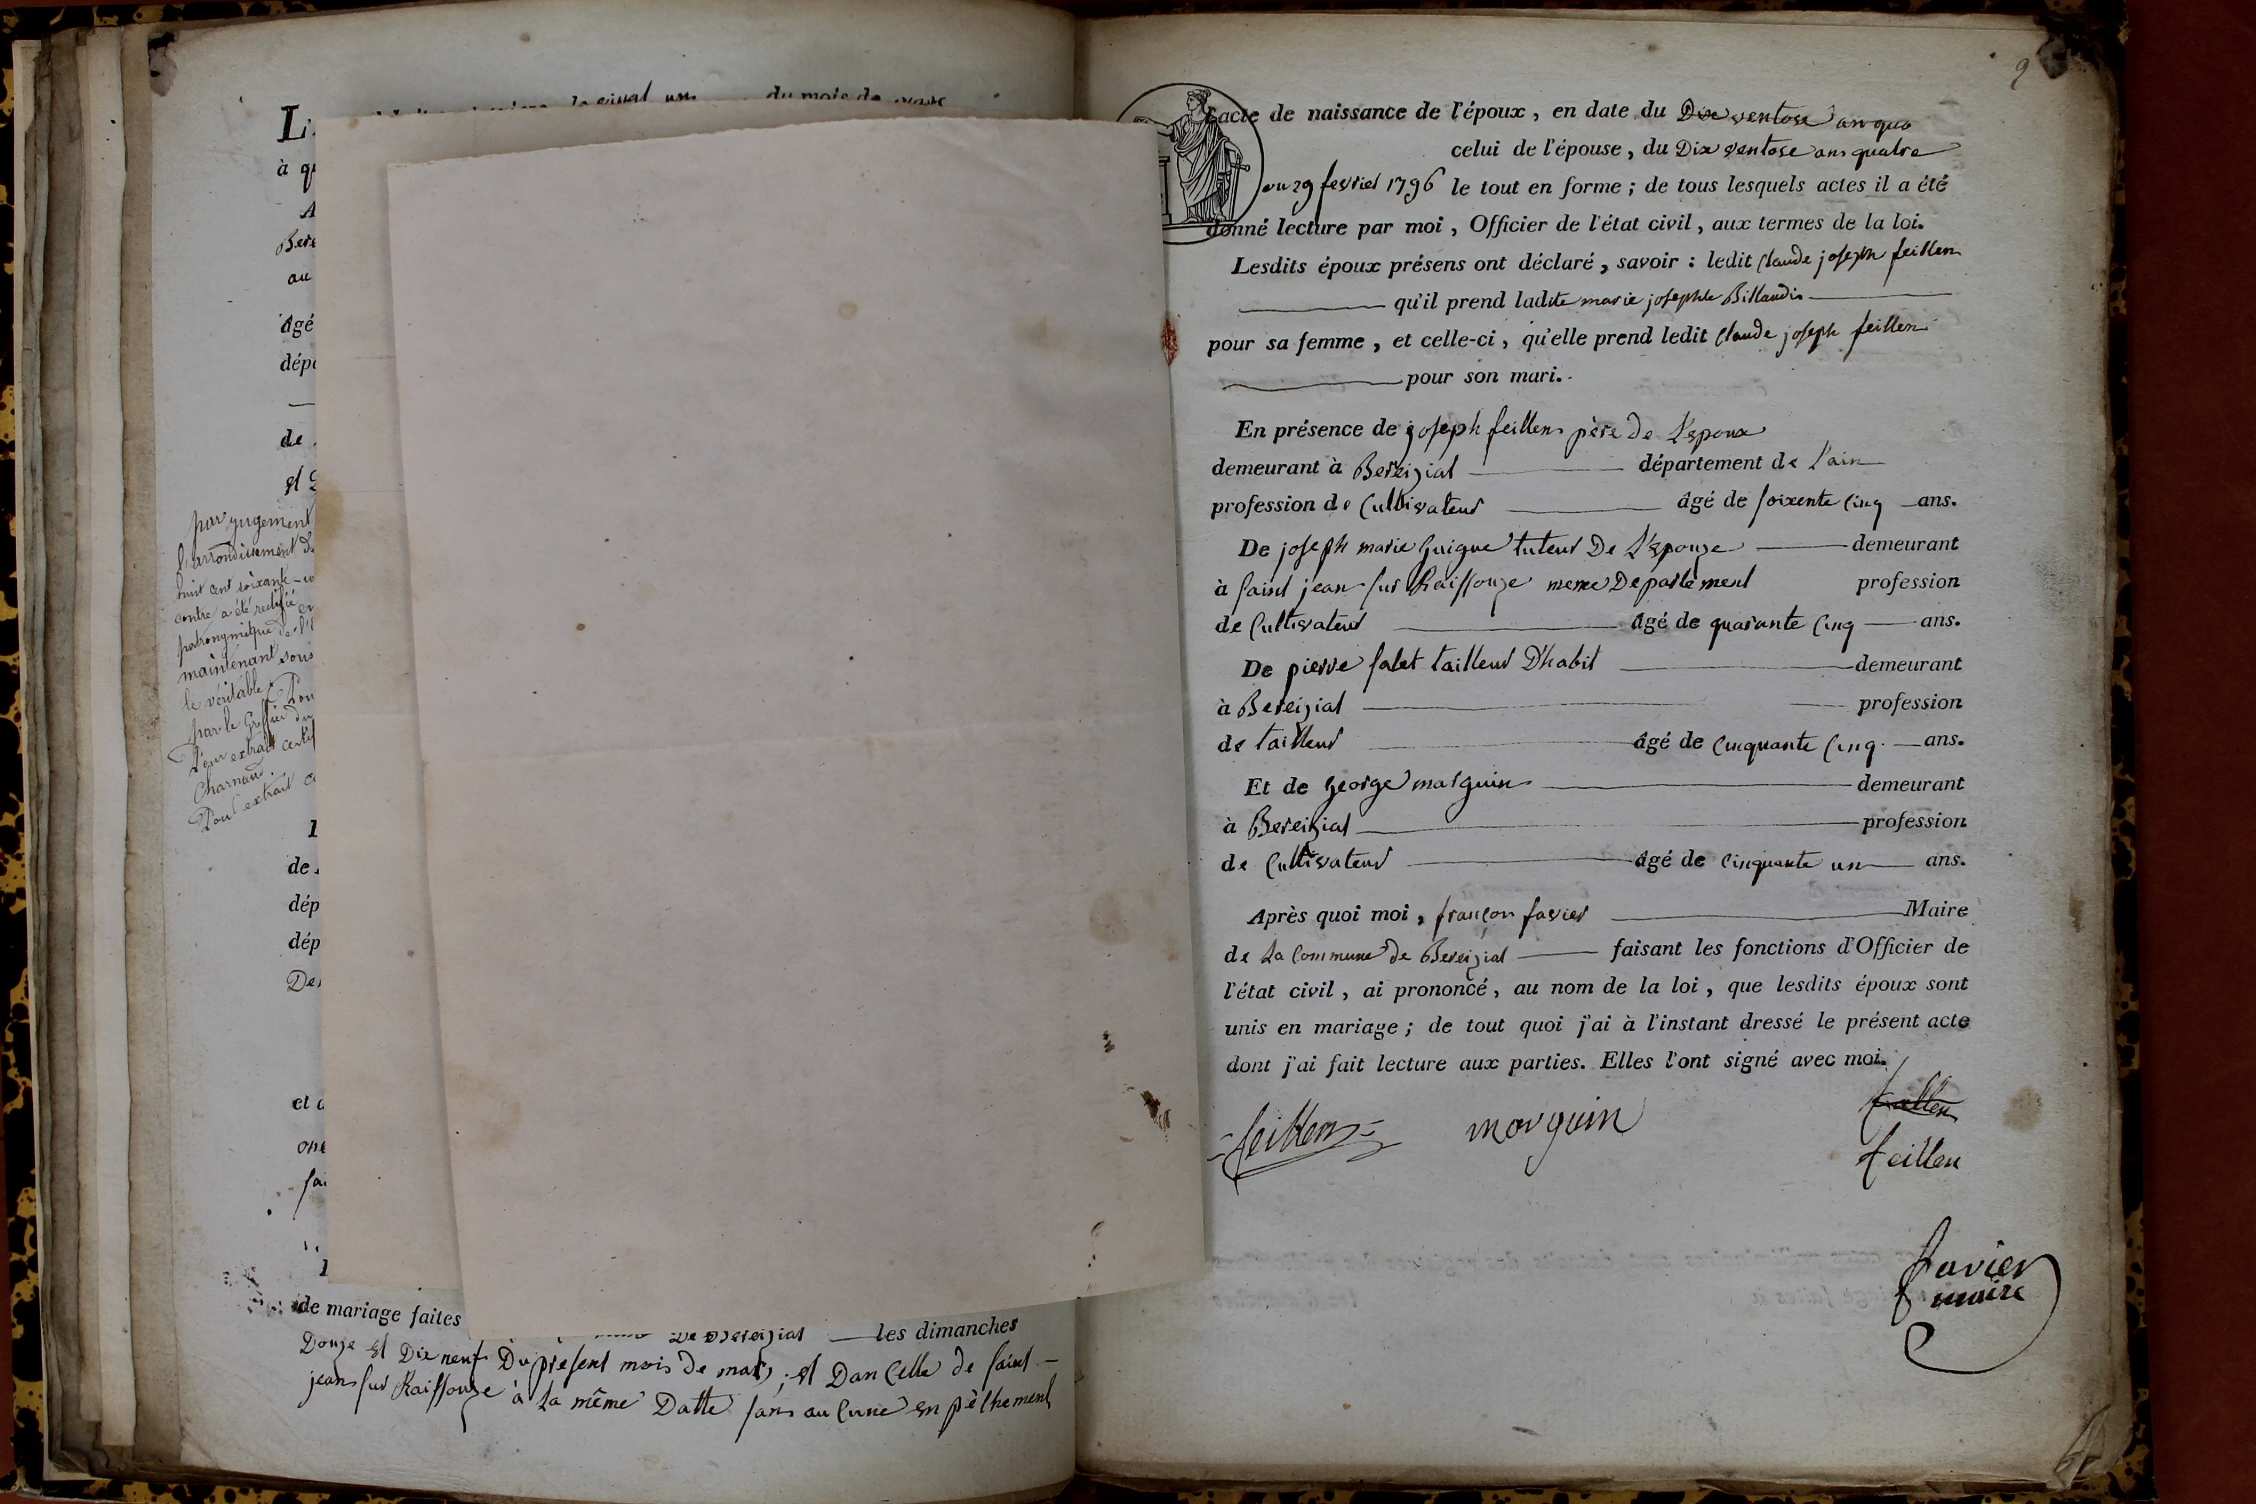 du mois de mars
à
A
Bere
au
âgé
dépa
de
et
par jugement
l'arrondissement d
huit cent soixante
contre a été rectifié en
patronymique de l'
maintenant sous
le véritable. Pour
par le Greffier du
Pour extrait certif
Charnaud.
Pour extrait
de
dép
dép
De
et d
de mariage faites De Bereizial les dimanches
Douze et Dix neuf Du present mois de mars ; et Dan Celle de saint
jean sur Raissouze à La même Datte sans au Cune en pèchement
9
L'acte de naissance de l'époux, en date du Dix ventose an qua
celui de l'épouse, du Dix ventose an quatre
ou 29 fevrier 1796 le tout en forme ; de tous lesquels actes il a été
donné lecture par moi, Officier de l'état civil, aux termes de la loi.
Lesdits époux présens ont déclaré, savoir : ledit Claude joseph feillen
qu'il prend ladite marie josephte Billaudi
pour sa femme, et celle-ci, qu'elle prend ledit Claude joseph feillen
pour son mari.
En présence de joseph feillen père De L'epoux
demeurant à Bereizial département de L'ain
profession de Cultivateur âgé de soixente Cinq ans.
De joseph marie Guigue tuteur De L'epouze demeurant
à saint jean sur Raissouze meme Departement profession
de Cultivateur âgé de quarante Cinq ans.
De pierre falet tailleur D'habit demeurant
à Bereizial profession
de tailleur âgé de Cinquante Cinq ans.
Et de George marguin demeurant
à Bereizial profession
de Cultivateur âgé de Cinquante un ans.
Après quoi moi, françon favier Maire
de La Commune de Bereizial faisant les fonctions d'Officier de
l'état civil, ai prononcé, au nom de la loi, que lesdits époux sont
unis en mariage ; de tout quoi j'ai à l'instant dressé le présent acte
dont j'ai fait lecture aux parties. Elles l'ont signé avec moi.
feillen
feillen marguin
feillen
favier
maire